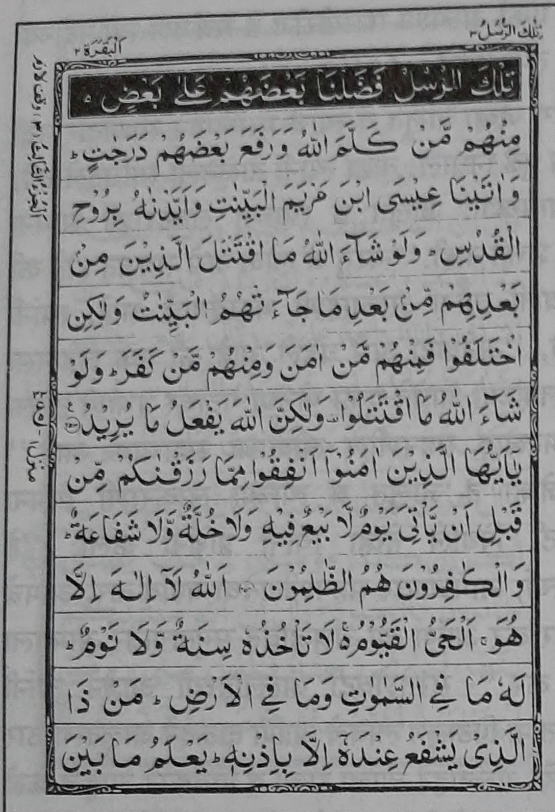 تِلْكَ الرُّسُلُ ٣
اَلْبَقَرَة ٢
تِلْكَ الرُّسُلُ فَضَّلْنَا بَعْضَهُمْ عَلٰى بَعْضٍ ۘ
مِنْهُمْ مَّنْ كَلَّمَ اللّٰهُ وَرَفَعَ بَعْضَهُمْ دَرَجٰتٍ ؕ
وَاٰتَيْنَا عِيْسَى ابْنَ مَرْيَمَ الْبَيِّنٰتِ وَاَيَّدْنٰهُ بِرُوْحِ
الْقُدُسِ ؕ وَلَوْ شَآءَ اللّٰهُ مَا اقْتَتَلَ الَّذِيْنَ مِنْ
بَعْدِهِمْ مِّنْۢ بَعْدِ مَا جَآءَتْهُمُ الْبَيِّنٰتُ وَلٰكِنِ
اخْتَلَفُوْا فَمِنْهُمْ مَّنْ اٰمَنَ وَمِنْهُمْ مَّنْ كَفَرَ ؕ وَلَوْ
شَآءَ اللّٰهُ مَا اقْتَتَلُوْا وَلٰكِنَّ اللّٰهَ يَفْعَلُ مَا يُرِيْدُ
يٰۤاَيُّهَا الَّذِيْنَ اٰمَنُوْۤا اَنْفِقُوْا مِمَّا رَزَقْنٰكُمْ مِّنْ
قَبْلِ اَنْ يَّاْتِيَ يَوْمٌ لَّا بَيْعٌ فِيْهِ وَلَا خُلَّةٌ وَّلَا شَفَاعَةٌ ؕ
وَالْكٰفِرُوْنَ هُمُ الظّٰلِمُوْنَ اَللّٰهُ لَاۤ اِلٰهَ اِلَّا
هُوَ ۚ اَلْحَيُّ الْقَيُّوْمُ ۚ لَا تَاْخُذُهٗ سِنَةٌ وَّلَا نَوْمٌ ؕ
لَهٗ مَا فِي السَّمٰوٰتِ وَمَا فِي الْاَرْضِ ؕ مَنْ ذَا
الَّذِيْ يَشْفَعُ عِنْدَهٗۤ اِلَّا بِاِذْنِهٖ ؕ يَعْلَمُ مَا بَيْنَ
اَلْجُزْءُ الثَّالِثُ (٣)
منزل ١